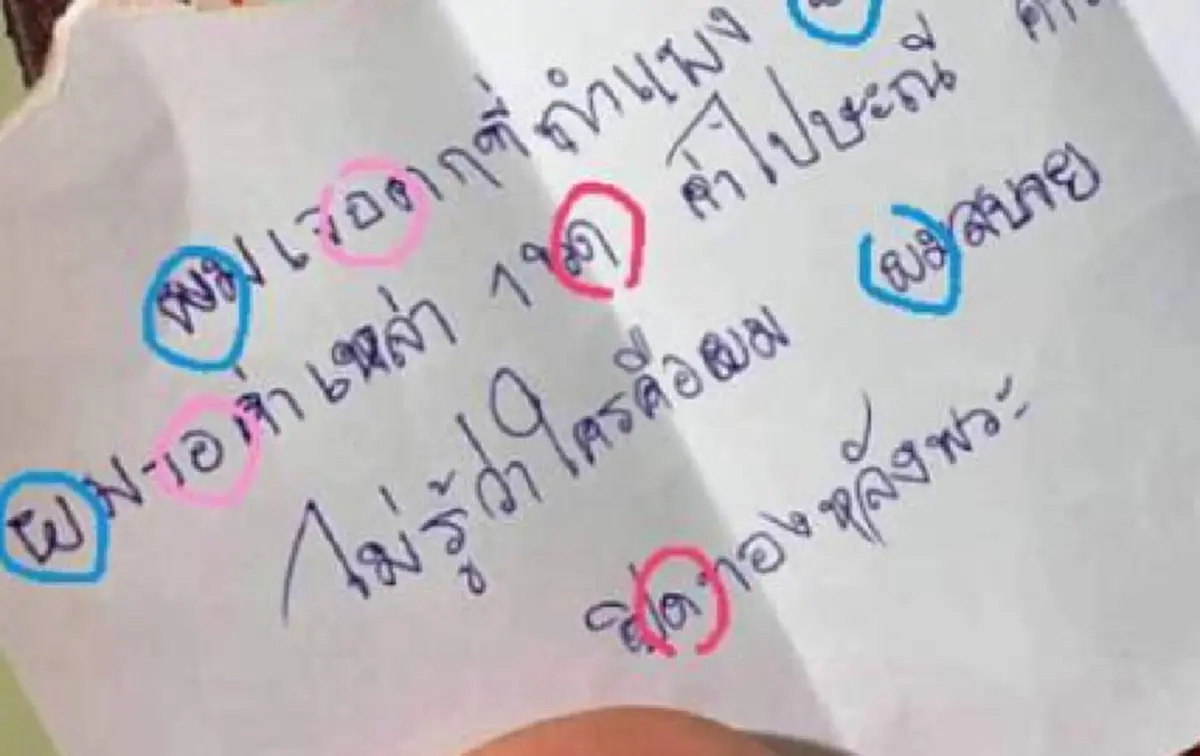 ผมเจอตกที่กำแพง
ผม-เอาเจ้าเหล่า 1 ขีด ค่าไปษะณี
ไม่รู้ว่าใครคือผม ผมสบาย
ปิดทองหลังพระ